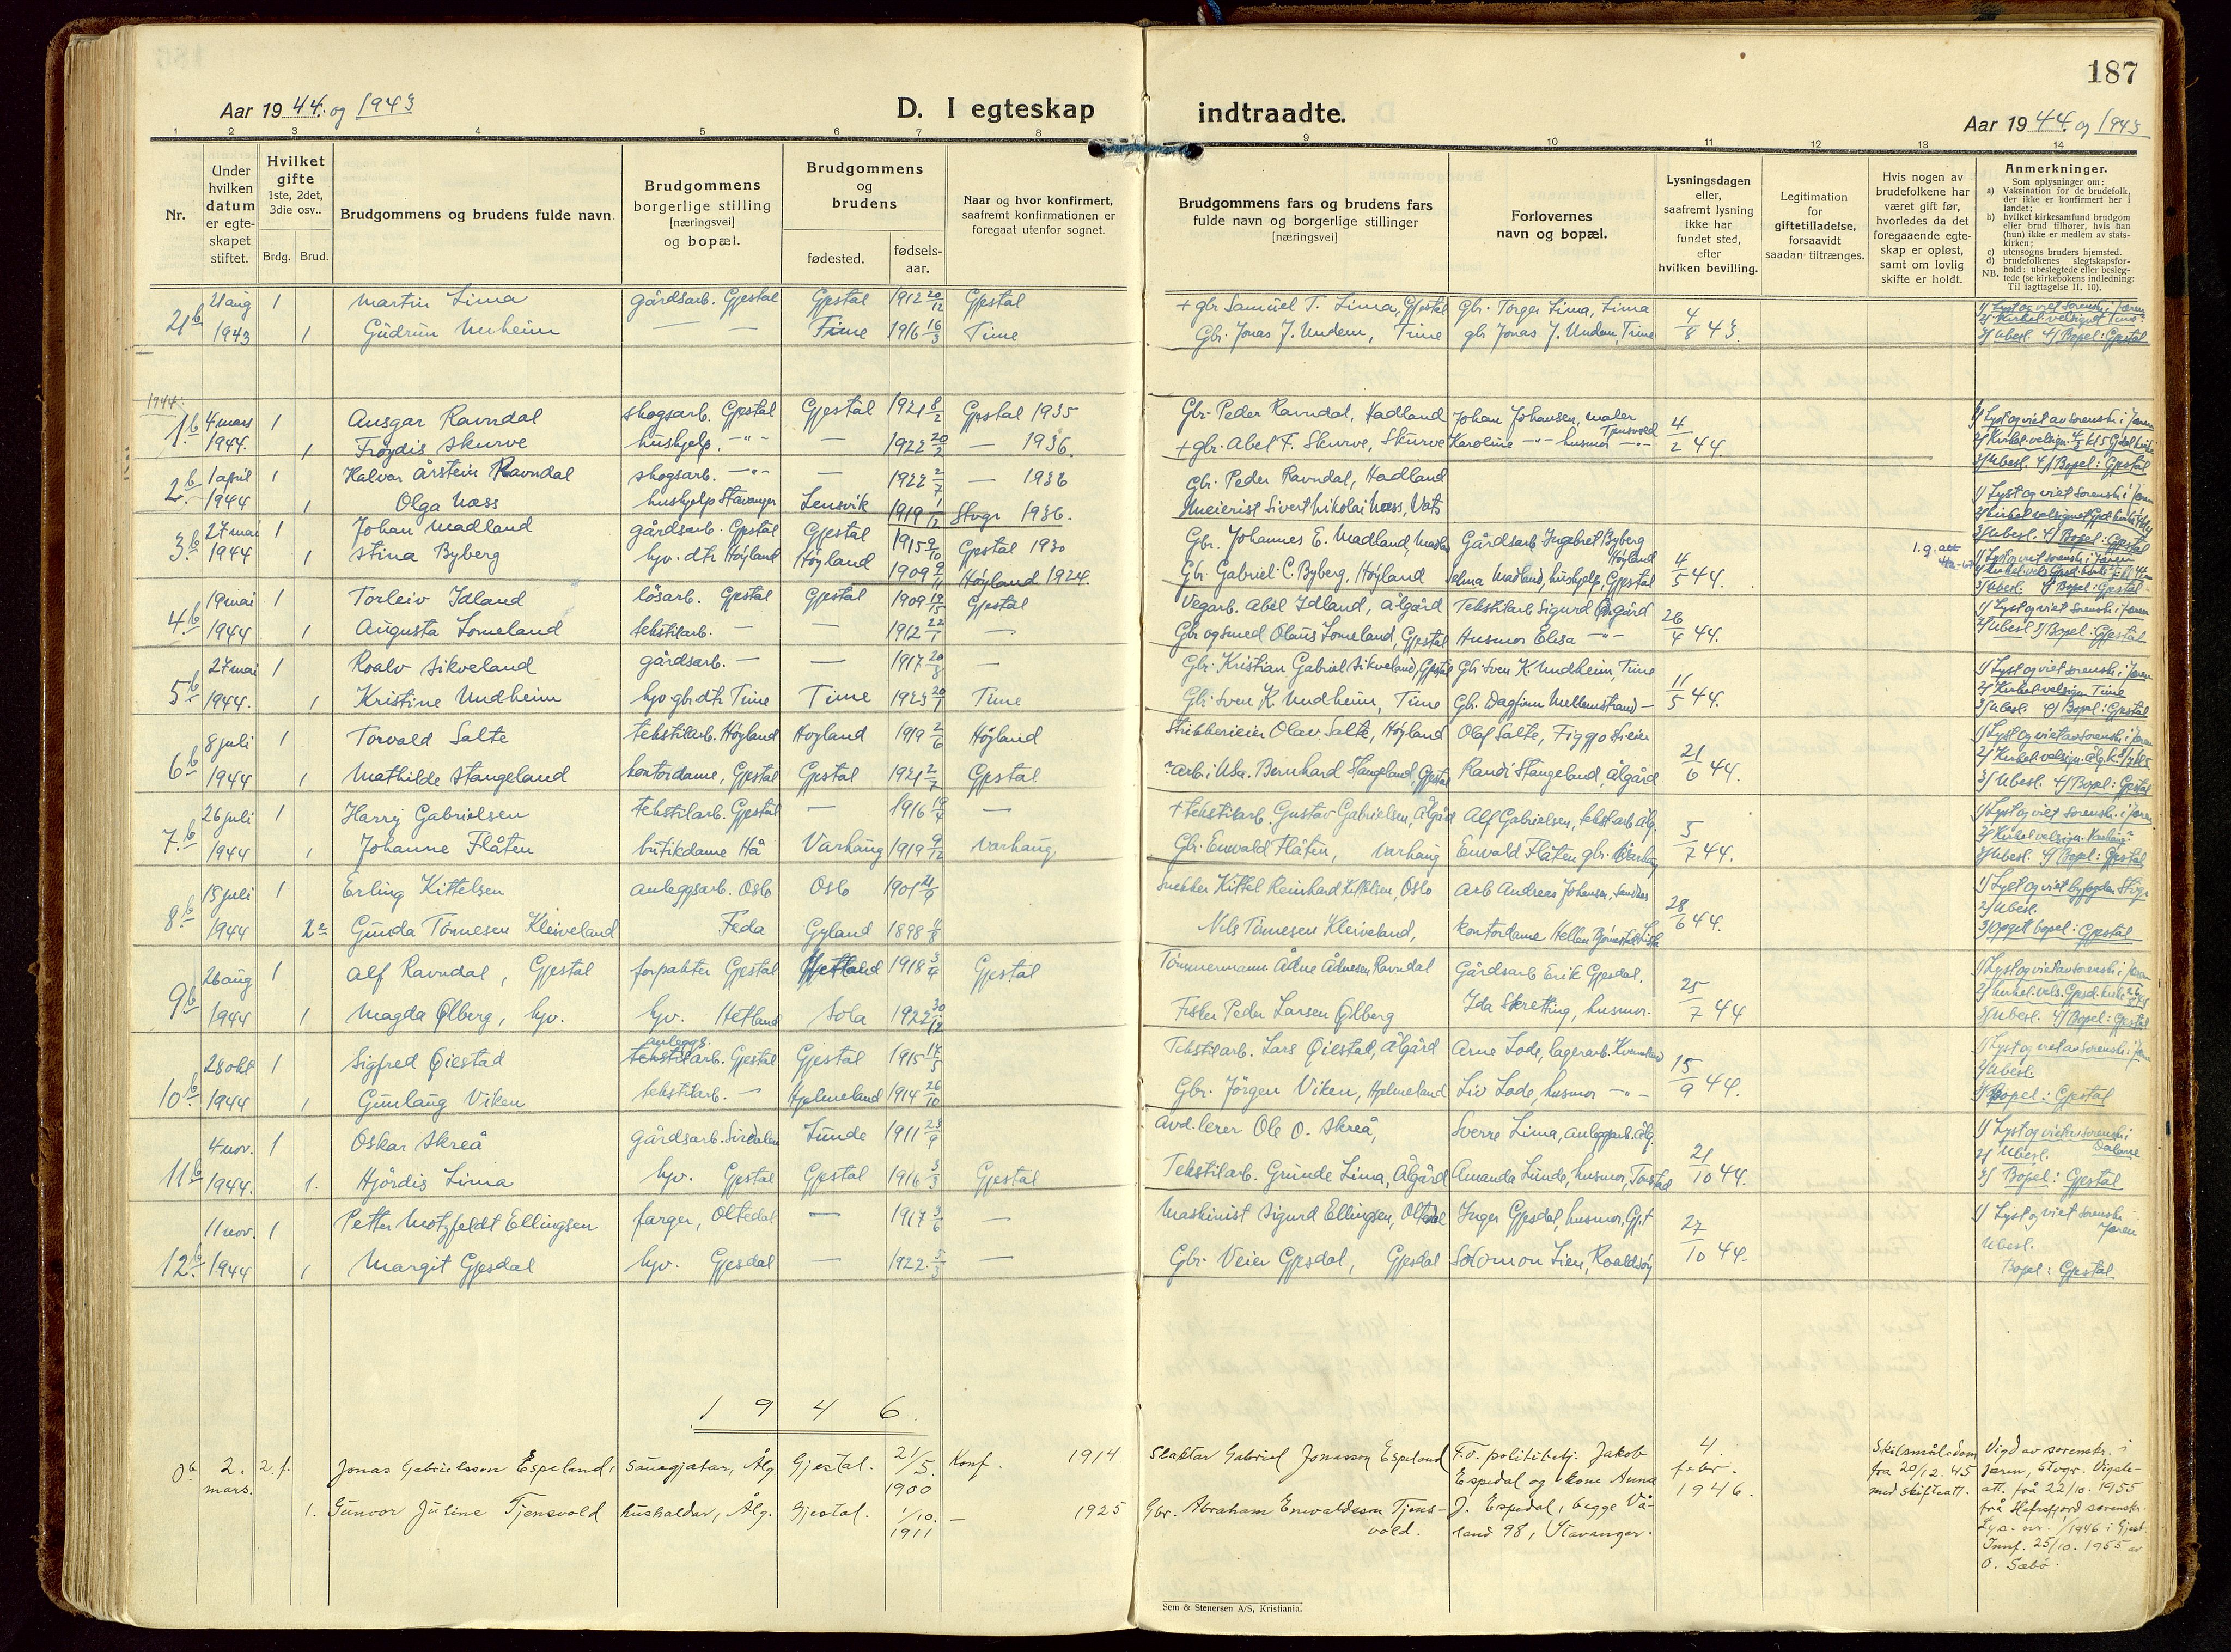 187
Aar 1944. og 1943
D. I egteskap indtraadte.
Aar 1944. og 1943
1 2 3 4 5 6 7 8 9 10 11 12 13 14
Nr.
Under
hvilken
datum
er egte-
skapet
stiftet.
Hvilket
gifte
1ste, 2det,
3die osv..
Brdg. Brud.
Brudgommens og brudens fulde navn.
Brudgommens
borgerlige stilling
[næringsvei]
og bopæl.
Brudgommens
og
brudens
fødested.
fødsels-
aar.
Naar og hvor konfirmert,
saafremt konfirmationen er
foregaat utenfor sognet.
Brudgommens fars og brudens fars
fulde navn og borgerlige stillinger
[næringsvei]
Forlovernes
navn og bopæl.
Lysningsdagen
eller,
saafremt lysning
ikke har
fundet sted,
efter
hvilken bevilling.
Legitimation
for
giftetilladelse,
forsaavidt
saadan tiltrænges.
Hvis nogen av
brudefolkene har
været gift før,
hvorledes da det
foregaaende egte-
skap er opløst,
samt om lovlig
skifte er holdt.
Anmerkninger.
Som oplysninger om:
a) Vaksination for de brudefolk,
der ikke er konfirmert her i
landet;
b) hvilket kirkesamfund brudgom
eller brud tilhører, hvis han
(hun) ikke er medlem av stats-
kirken;
c) utensogns bruders hjemsted.
d) brudefolkenes slegtskapsfor-
hold: ubeslegtede eller besleg-
NB. tede (se kirkebokens indledning:
Til iagttagelse II. 10).
21 b 21 aug 1 Martin Lima gårdsarb. Gjestal Gjestal 1912 20/12 Gjestal + gbr Samuel T. Lima, Gjestal Gbr. Torger Lima, Lima 4/8 43. 1/ Lyst og viet sorenskr. i Jæren
2/ Kirkel. velsignet Time
1943 1 Gudrun Unheim — — Time 1916 16/3 Time Gbr. Jonas J. Undem, Time gbr Jonas J. Undem, Time 3/ Ubesl. 4/ Bopel: Gjestal
1944:
1 b 4 mars 1 Ansgar Ravndal skogsarb. Gjestal Gjestal 1921 8/2 Gjestal 1935 Gbr. Peder Ravndal, Hadland Johan Johansen, maler Tjensvold 4/2 44. 1/ Lyst og viet av sorenskr. i Jæren
1944. 1 Frøydis Skurve hushjelp. -"- — 1922 20/2 — 1936. + gbr. Abel F. Skurve, Skurve Karoline -"- husmor -"- 2/ Kirkel. velsign. 4/3 kl 5 Gjestal kirke
3/ Ubesl. 4/ Bopel: Gjestal
2 b 1 april 1 Halvar Årstein Ravndal skogsarb. -"- — 1922 2/7 — 1936 Gbr. Peder Ravndal, Hadland
1944 1 Olga Næss hushjelp Stavanger Lensvik 1919 1/12 Stvgr 1936. Meierist Sivert Nikolai Næss, Vats 1/ Lyst og viet sorenskr. i Jæren
3/ Ubesl. 4/ Bopel: Gjestal
3 b 27 mai 1 Johan Madland gårdsarb. Gjestal Gjestal 1915 9/10 Gjestal 1930 Gbr. Johannes E. Madland, Gårdsarb Ingebret Byberg Høyland 4/5 44.
1944 1 Stina Byberg hjv. dtr Høyland Høyland 1909 9/11 Høyland 1924. Gbr. Gabriel C. Byberg, Høyland Selma Madland, hushjelp, Gjestal 3/ Ubesl. 4/ Bopel: Gjestal
4 b 19 mai 1 Torleiv Idland løsarb. Gjestal Gjestal 1909 Gjestal Vegarb. Abel Idland, Ålgård Tekstilarb Sigurd Ålgård 26/4 44. 1/ Lyst og viet sorenskr. i Jæren
1944 1 Augusta Lomeland tekstilarb. — — 1912 22/1 — Gbr og smed Olaus Lomeland, Gjestal Husmor Elisa -"- 2/ Ubesl 3/ Bopel: Gjestal
5 b 27 mai 1 Roalv Sikveland gårdsarb. — — 1917 20/8 — Gbr. Kristian Gabriel Sikveland, Gjestal Gbr. Sven K. Undheim, Time 11/5 44. 1/ Lyst og viet sorenskr. i Jæren
2/ Kirkel. velsign. Time
1944. 1 Kristine Undheim hjv gbr. dtr Time Time 1923 20/1 Time Gbr. Sven K. Undheim, Time Gbr. Dagfinn Mellemstrand — 3/ Ubesl. 4/ Bopel: Gjestal
6 b 8 juli 1 Torvald Salte tekstilarb. Høyland Høyland 1919 2/6 Høyland Olav Salte, Høyland Olaf Salte, Figgjo 21/6 44. 1/ Lyst og viet av sorenskr. i Jæren
1944 1 Mathilde Stangeland kontordame, Gjestal Gjestal 1921 2/7 Gjestal arb. i Usa. Bernhard Stangeland, Gjestal Randi Stangeland, Ålgård 3/ Ubesl. 4/ Bopel: Gjestal
7 b 26 juli 1 Harry Gabrielsen tekstilarb. Gjestal — 1916 19/4 — + tekstilarb. Gustav Gabrielsen, Ålgård Alf Gabrielsen, tekstarb Ålg. 5/7 44. 1/ Lyst og viet sorenskr. i Jæren.
2/ Kirkel velsign. Varhaug
1944 1 Johanne Flåten butikdame Hå Varhaug 1919 9/12 Varhaug Gbr. Enevald Flåten, Varhaug Enevald Flåten gbr. Varhaug 3/ Ubesl. 4/ Bopel: Gjestal
8 b 15 juli 1 Erling Kittelsen anleggsarb. Oslo Oslo 1901 21/9 Snekker Kittel Reinhard Kittelsen, Oslo Arb Andreas Johansen, 28/6 44. 1/ Lyst og viet byfogden Stvgr.
2/ Ubesl.
1944 2e Gunda Tønnesen Kleiveland Feda Gyland 1898 4/8 Nils Tønnesen Kleiveland, kontordame Hellen 3/ Opgitt bopel: Gjestal
9 b 26 aug 1 Alf Ravndal, Gjestal forpakter Gjestal 1918 3/4 Gjestal Tømmermann Ådne Ådnesen Ravndal Gårdsarb Erik Gjesdal. 25/7 44 1/ Lyst og viet av sorenskr. i Jæren
1944 1 Magda Ølberg, hjv. hjv. Hetland Sola 1922 30/12 Fisker Peder Larsen Ølberg Ida Skretting, husmor. 3/ Ubesl. 4/ Bopel: Gjestal
10 b 28 okt 1 Sigfred Øiestad anleggs. tekstilarb. Gjestal Gjestal 1915 14/5 Tekstilarb. Lars Øiestad, Ålgård Arne Lode, lagerarb. 15/9 44. 1/ Lyst og viet av sorenskr. i Jæren
2/ Ubesl.
1944 1 Gunlaug Viken tekstilarb. — Hjelmeland 1914 26/10 Gbr. Jørgen Viken, Hjelmeland Liv Lode, husmor -"- 3/ Bopel: Gjestal
11 b 4 nov. 1 Oskar Skreå gårdsarb. Sirdalen Lunde 1911 23/9 Avd. lærer Ole O. Skreå, Sverre Lima, anleggsarb. Ålg. 21/10 44. 1/ Lyst og viet av sorenskr. i Dalane
2/ Ubesl.
1944. 1. Hjørdis Lima hjv. Gjestal Gjestal 1916 3/3 Gjestal Tekstilarb. Grunde Lima, Ålgård Amanda Lunde, husmor, 3/ Bopel: Gjestal
12 b 11 nov. 1 Petter Motzfeldt Ellingsen farger, Oltedal — 1917 3/6 — Maskinist Sigurd Ellingsen, Oltedal Inger Gjesdal, husmor, Gj.t 27/10 44. 1/ Lyst og viet sorenskr. Jæren
Ubesl.
1944 1 Margit Gjesdal hjv. Gjesdal — 1922. 5/3 — Gbr. Veier Gjesdal, Gjesdal Solomon Lien, Roaldsøy Bopel: Gjestal.
1 9 4 6.
0 b 2. mars. 2. f. Jonas Gabrielsson Espeland, sauegjætar, Ålg. Gjestal. 21/5. 1900 Konf. 1914 Slaktar Gabriel Jonasson Espeland F.v. politibetj. Jakob Espedal og kone Anna 4. febr. 1946. Skilsmålsdom fra 20/12. 45 med skifteatt. Vigd av sorenskr. i
Jæren, Stvgr. Vigsle-
att. frå 22/10. 1955
1. Gunvor Juline Tjensvold hushaldar, Ålg. Gjestal. 1/10. 1911 — 1925 Gbr. Abraham Enevaldsson Tjens-vold. J. Espedal, begge Vå-land 98, Stavanger. frå Hafrsfjord sorenskr.
Lys. nr. 1/1946 i Gjest.
Innf. 25/10. 1955 av
O. Sæbø.
Sem & Stenersen A/S, Kristiania.